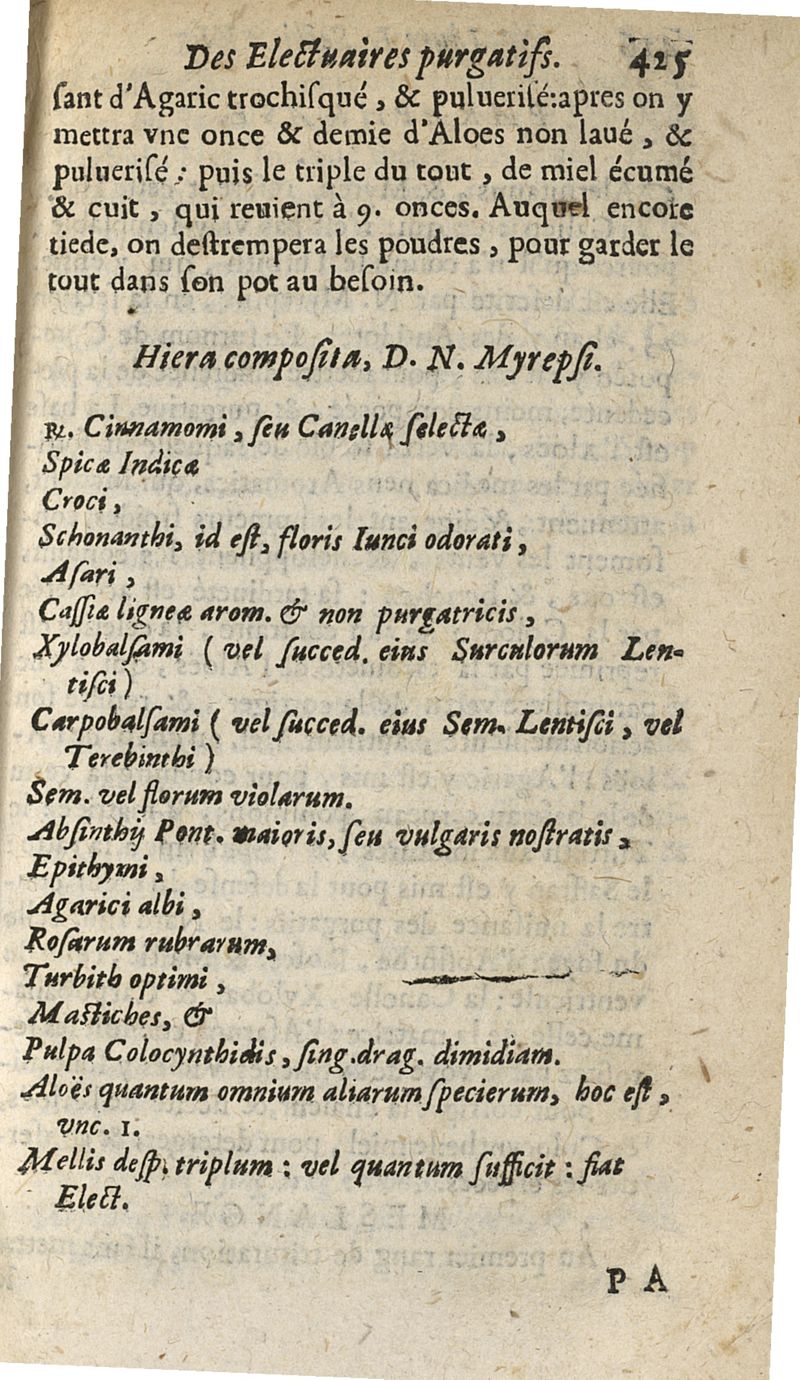 Des Electuaires purgatifs. 425
ſant d'Agaric trochiſqué, & pulueriſé: apres on y
mettra vne once & demie d'Aloes non laué, &
pulueriſé: puis le triple du tout, de miel écumé
& cuit, qui reuient à 9. onces. Auquel encore
tiede, on deſtrempera les poudres, pour garder le
tout dans ſon pot au beſoin.
Hiera compoſita, D. N. Myrepſi.
℞. Cinnamomi, ſeu Canellæ ſelectæ,
Spicæ Indicæ
Croci,
Schonanthi, id eſt, floris Iunci odorati,
Aſari,
Caſſiæ ligneæ arom. & non purgatricis,
Xylobalſami ( vel ſucced. eius Surculorum Len-
tiſci )
Carpobalſami ( vel ſucced. eius Sem. Lentiſci, vel
Terebinthi )
Sem. vel florum violarum.
Abſinthij Pont. maioris, ſeu vulgaris noſtratis,
Epithymi,
Agarici albi,
Roſarum rubrarum,
Turbith optimi,
Maſtiches, &
Pulpa Colocynthidis, ſing. drag. dimidiam.
Aloës quantum omnium aliarum ſpecierum, hoc eſt,
vnc. 1.
Mellis deſp. triplum : vel quantum ſufficit : fiat
Elect.
P A